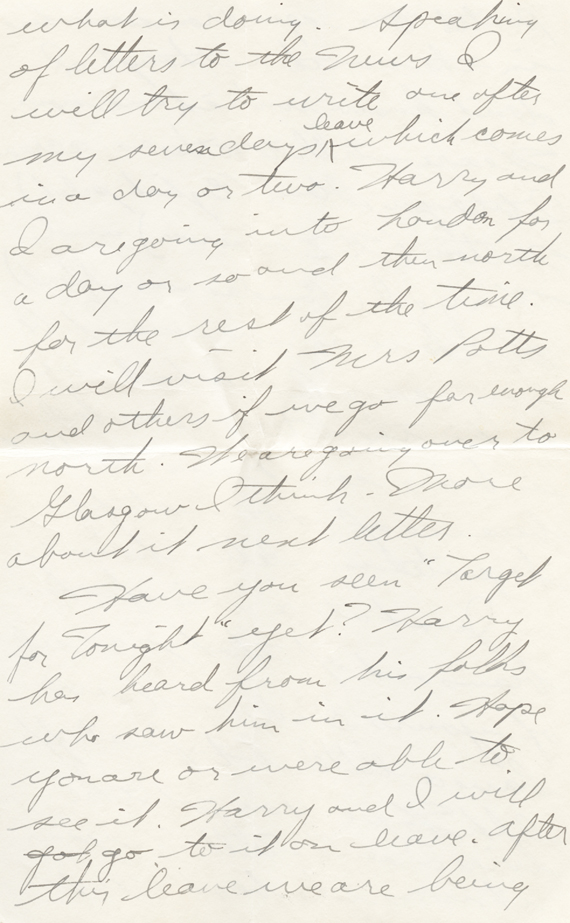 what is doing. Speaking
of letters to the News I
will try to write one after
my seven days leave which comes
in a day or two. Harry and
I are going into London for
a day or so and then north
for the rest of the time.
I will visit Mrs Potts
and others if we go far enough
north. We are going over to
Glasgow I think. More
about it next letter.
Have you seen "Target
for Tonight" yet? Harry
has heard from his folks
who saw him in it. Hope
you are or were able to
see it. Harry and I will
got go to it on leave. After
this leave we are being